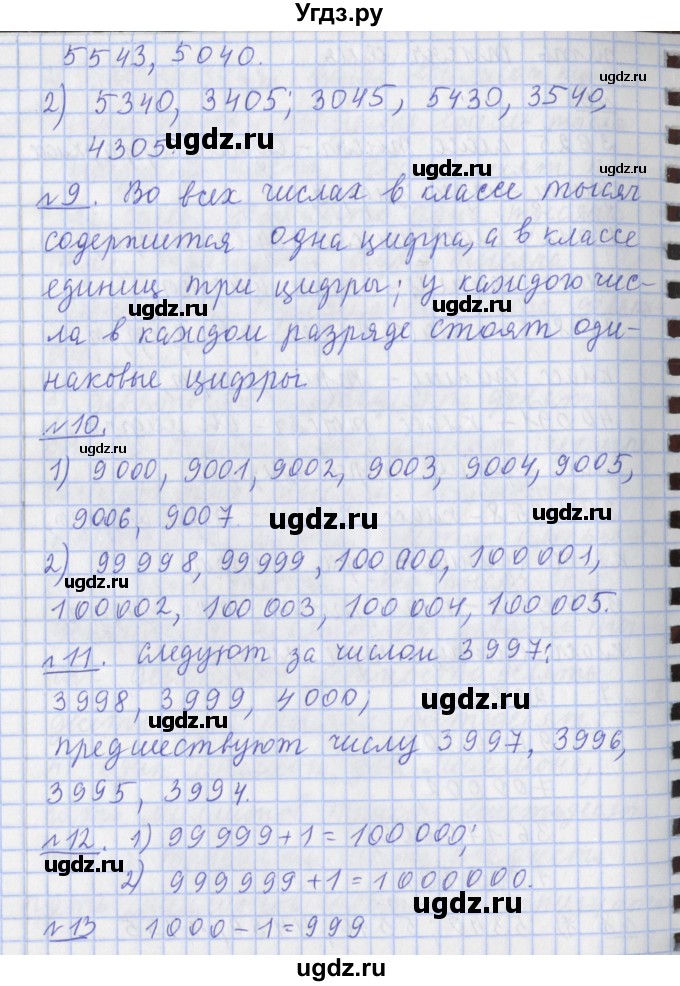 Угдз.ру
5543, 5040.
ugdz.ru
2) 5340, 3405; 3045, 5430, 3540,
ugdz.ru ugdz.ru
4305.
№9. Во всех числах в классе тысяч
содержится одна цифра, а в классе
единиц три цифры; у каждого чис-
ugdz.ru ugdz.ru
ла в каждом разряде стоят оди-
наковые цифры
№10.
ugdz.ru
1) 9000, 9001, 9002, 9003, 9004, 9005,
9006, 9007
ugdz.ru ugdz.ru
2) 99998, 99999, 100000, 100001,
ugdz.ru
100002, 100003, 100004, 100005.
№11. Следуют за числом 3997:
ugdz.ru
3998, 3999, 4000;
ugdz.ru ugdz.ru
предшествуют числу 3997, 3996,
3995, 3994.
№12. 1) 99999+1=100000;
ugdz.ru
2) 999999+1=1000000.
ugdz.ru
№13 1000-1=999
ugdz.ru
ugdz.ru